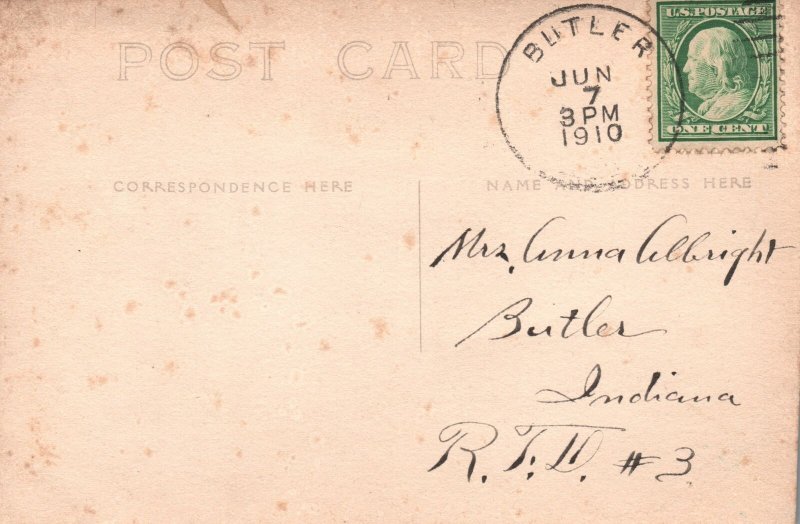 POST CARD
BUTLER
JUN
7
3 PM
1910
U.S. POSTAGE
ONE CENT
CORRESPONDENCE HERE
NAME AND ADDRESS HERE
Mrs. Anna Albright
Butler
Indiana
R.F.D. #3